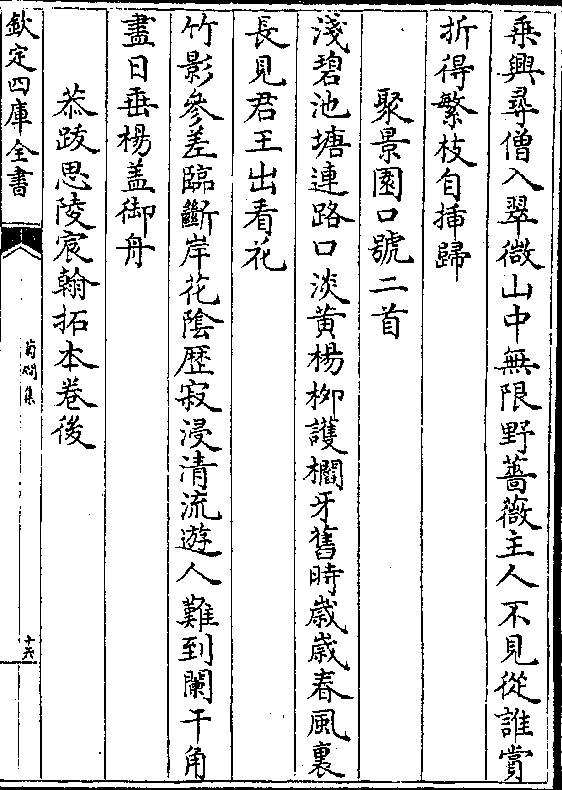 乗興尋僧入翠微山中無限野薔薇主人不見從誰賞
折得繁枝自揷歸
聚景園口號二首
淺碧池塘連路口淡黃楊柳護櫩牙舊時嵗嵗春風裏
長見君王出看花
竹影參差臨斷岸花陰歴寂浸清流遊人難到闌干角
盡日垂楊蓋御舟
恭跋思陵宸翰拓本卷後
欽定四庫全書
菊磵集
十六